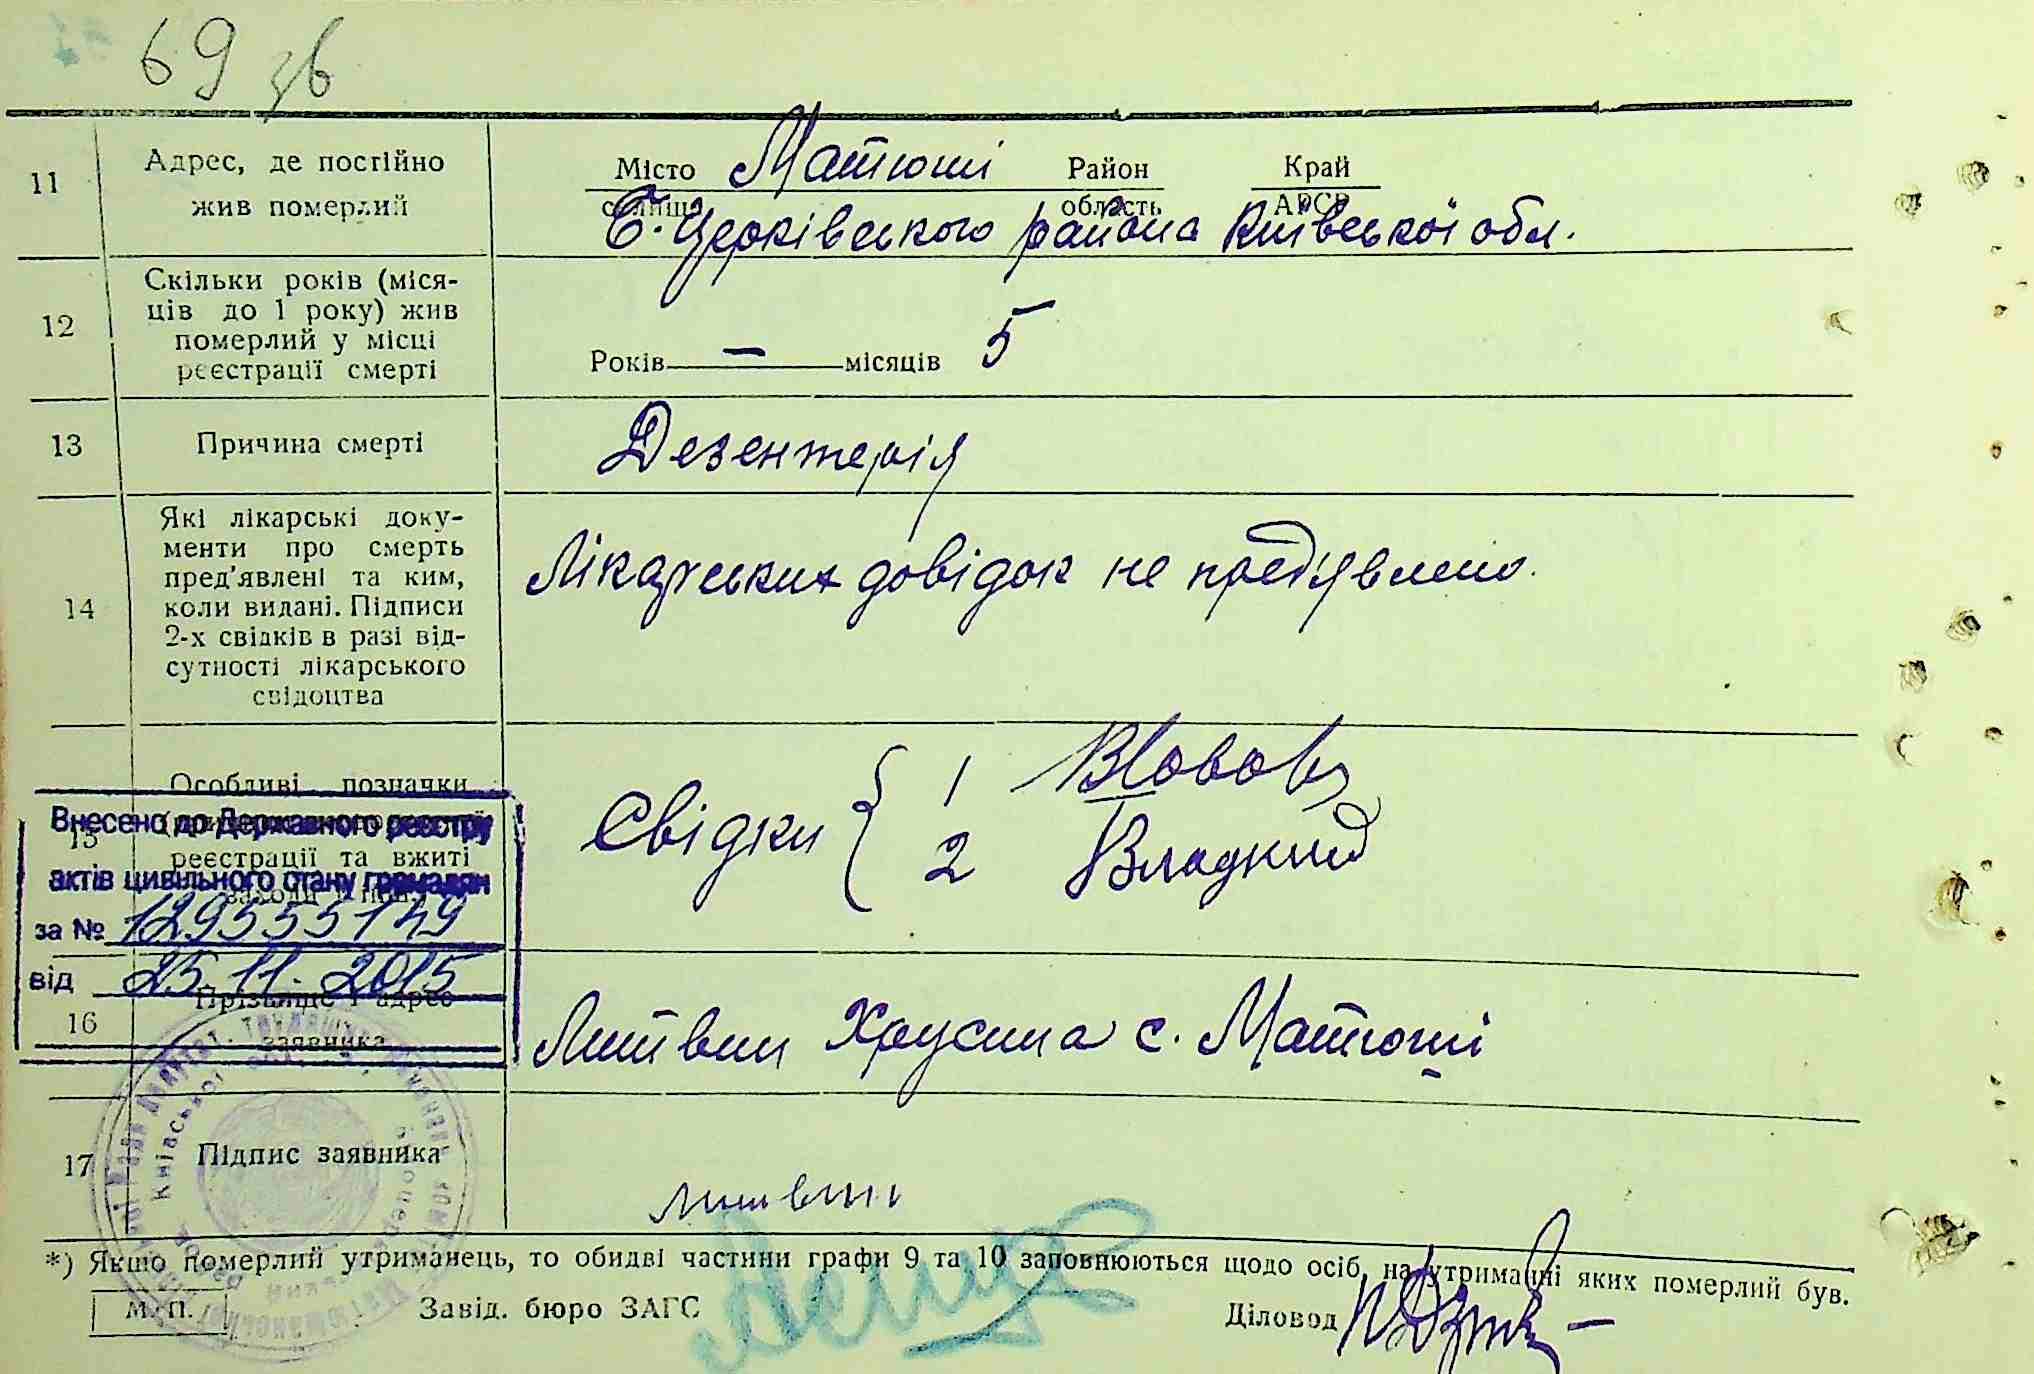 69 зв
11 Адрес, де постійно жив померлий
Місто Матюші Район Край
селище область АРСР
Б. Церківського района Київської обл.
12 Скільки років (міся-
ців до 1 року) жив
померлий у місці
реєстрації смерті
Років — місяців 5
13 Причина смерті
Дезентерія
14 Які лікарські доку-
менти про смерть
пред'явлені та ким,
коли видані. Підписи
2-х свідків в разі від-
сутності лікарського
свідоцтва
Лікарських довідок не пред'явлено.
15 Особливі позначки
реєстрації та вжиті
заходи
Свідки { 1
2
Внесено до Державного реєстру
актів цивільного стану громадян
за №
від 25.11.2015
16 Прізвище і адрес
заявника
Литвин Христина с. Матюші
17 Підпис заявника
Литвин
*) Якщо померлий утриманець, то обидві частини графи 9 та 10 заповнюються щодо осіб, на утриманні яких померлий був.
М. П. Завід. бюро ЗАГС Діловод